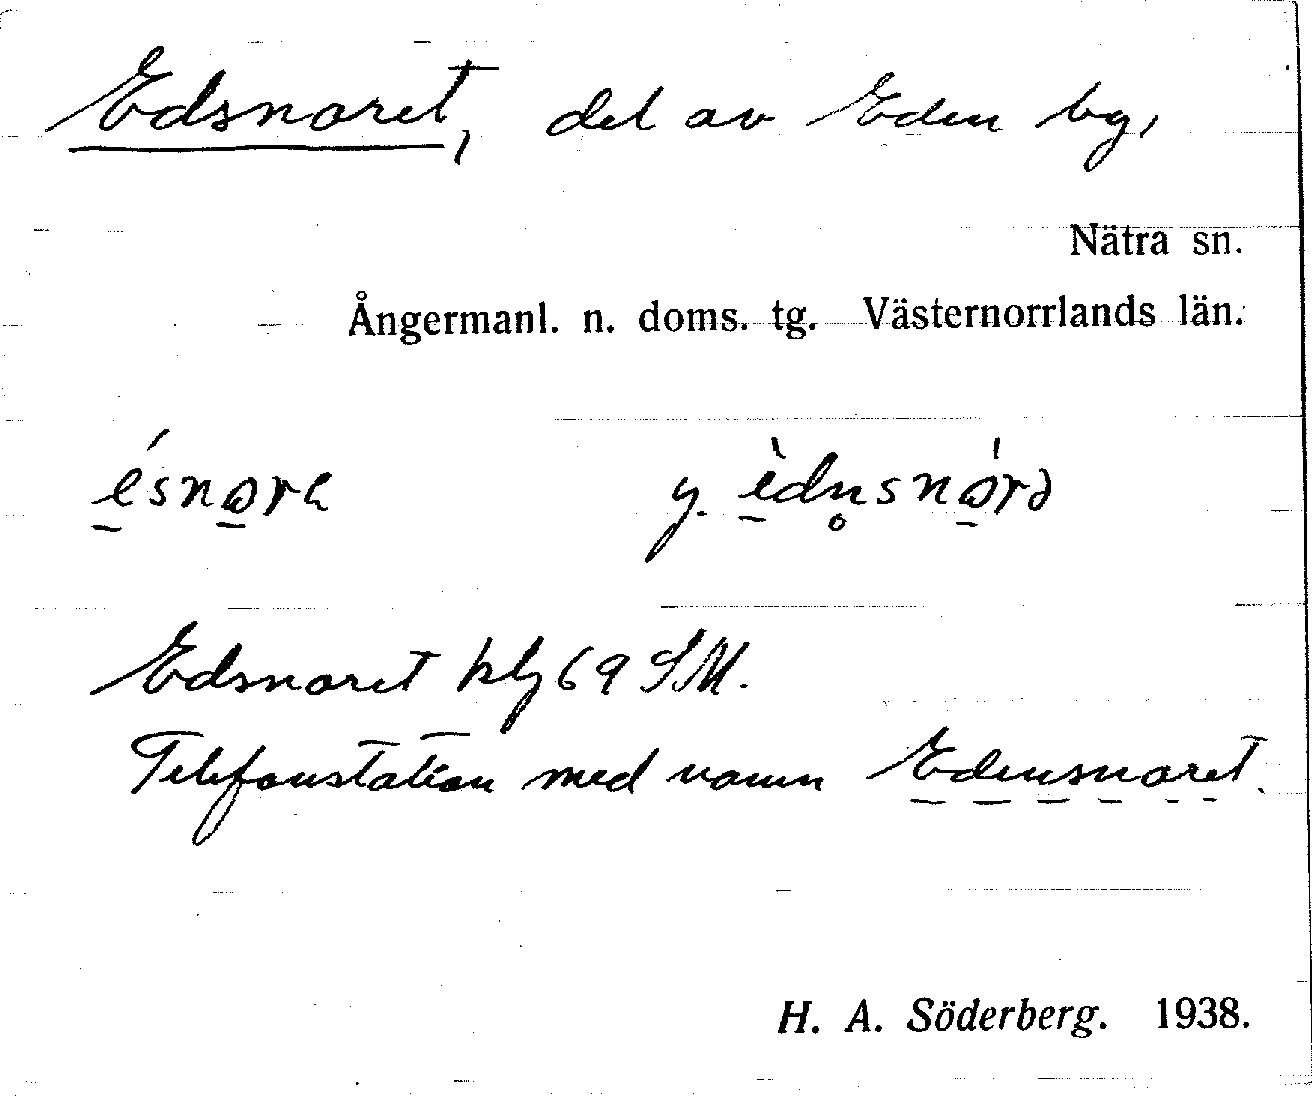 Edsnoret, del av Eden by,
Nätra sn.
Ångermanl. n. doms. tg. Västernorrlands län.
y.
Edsnoret hlj 69 SM.
Telefonstation med namn Edensnoret.
H. A. Söderberg. 1938.